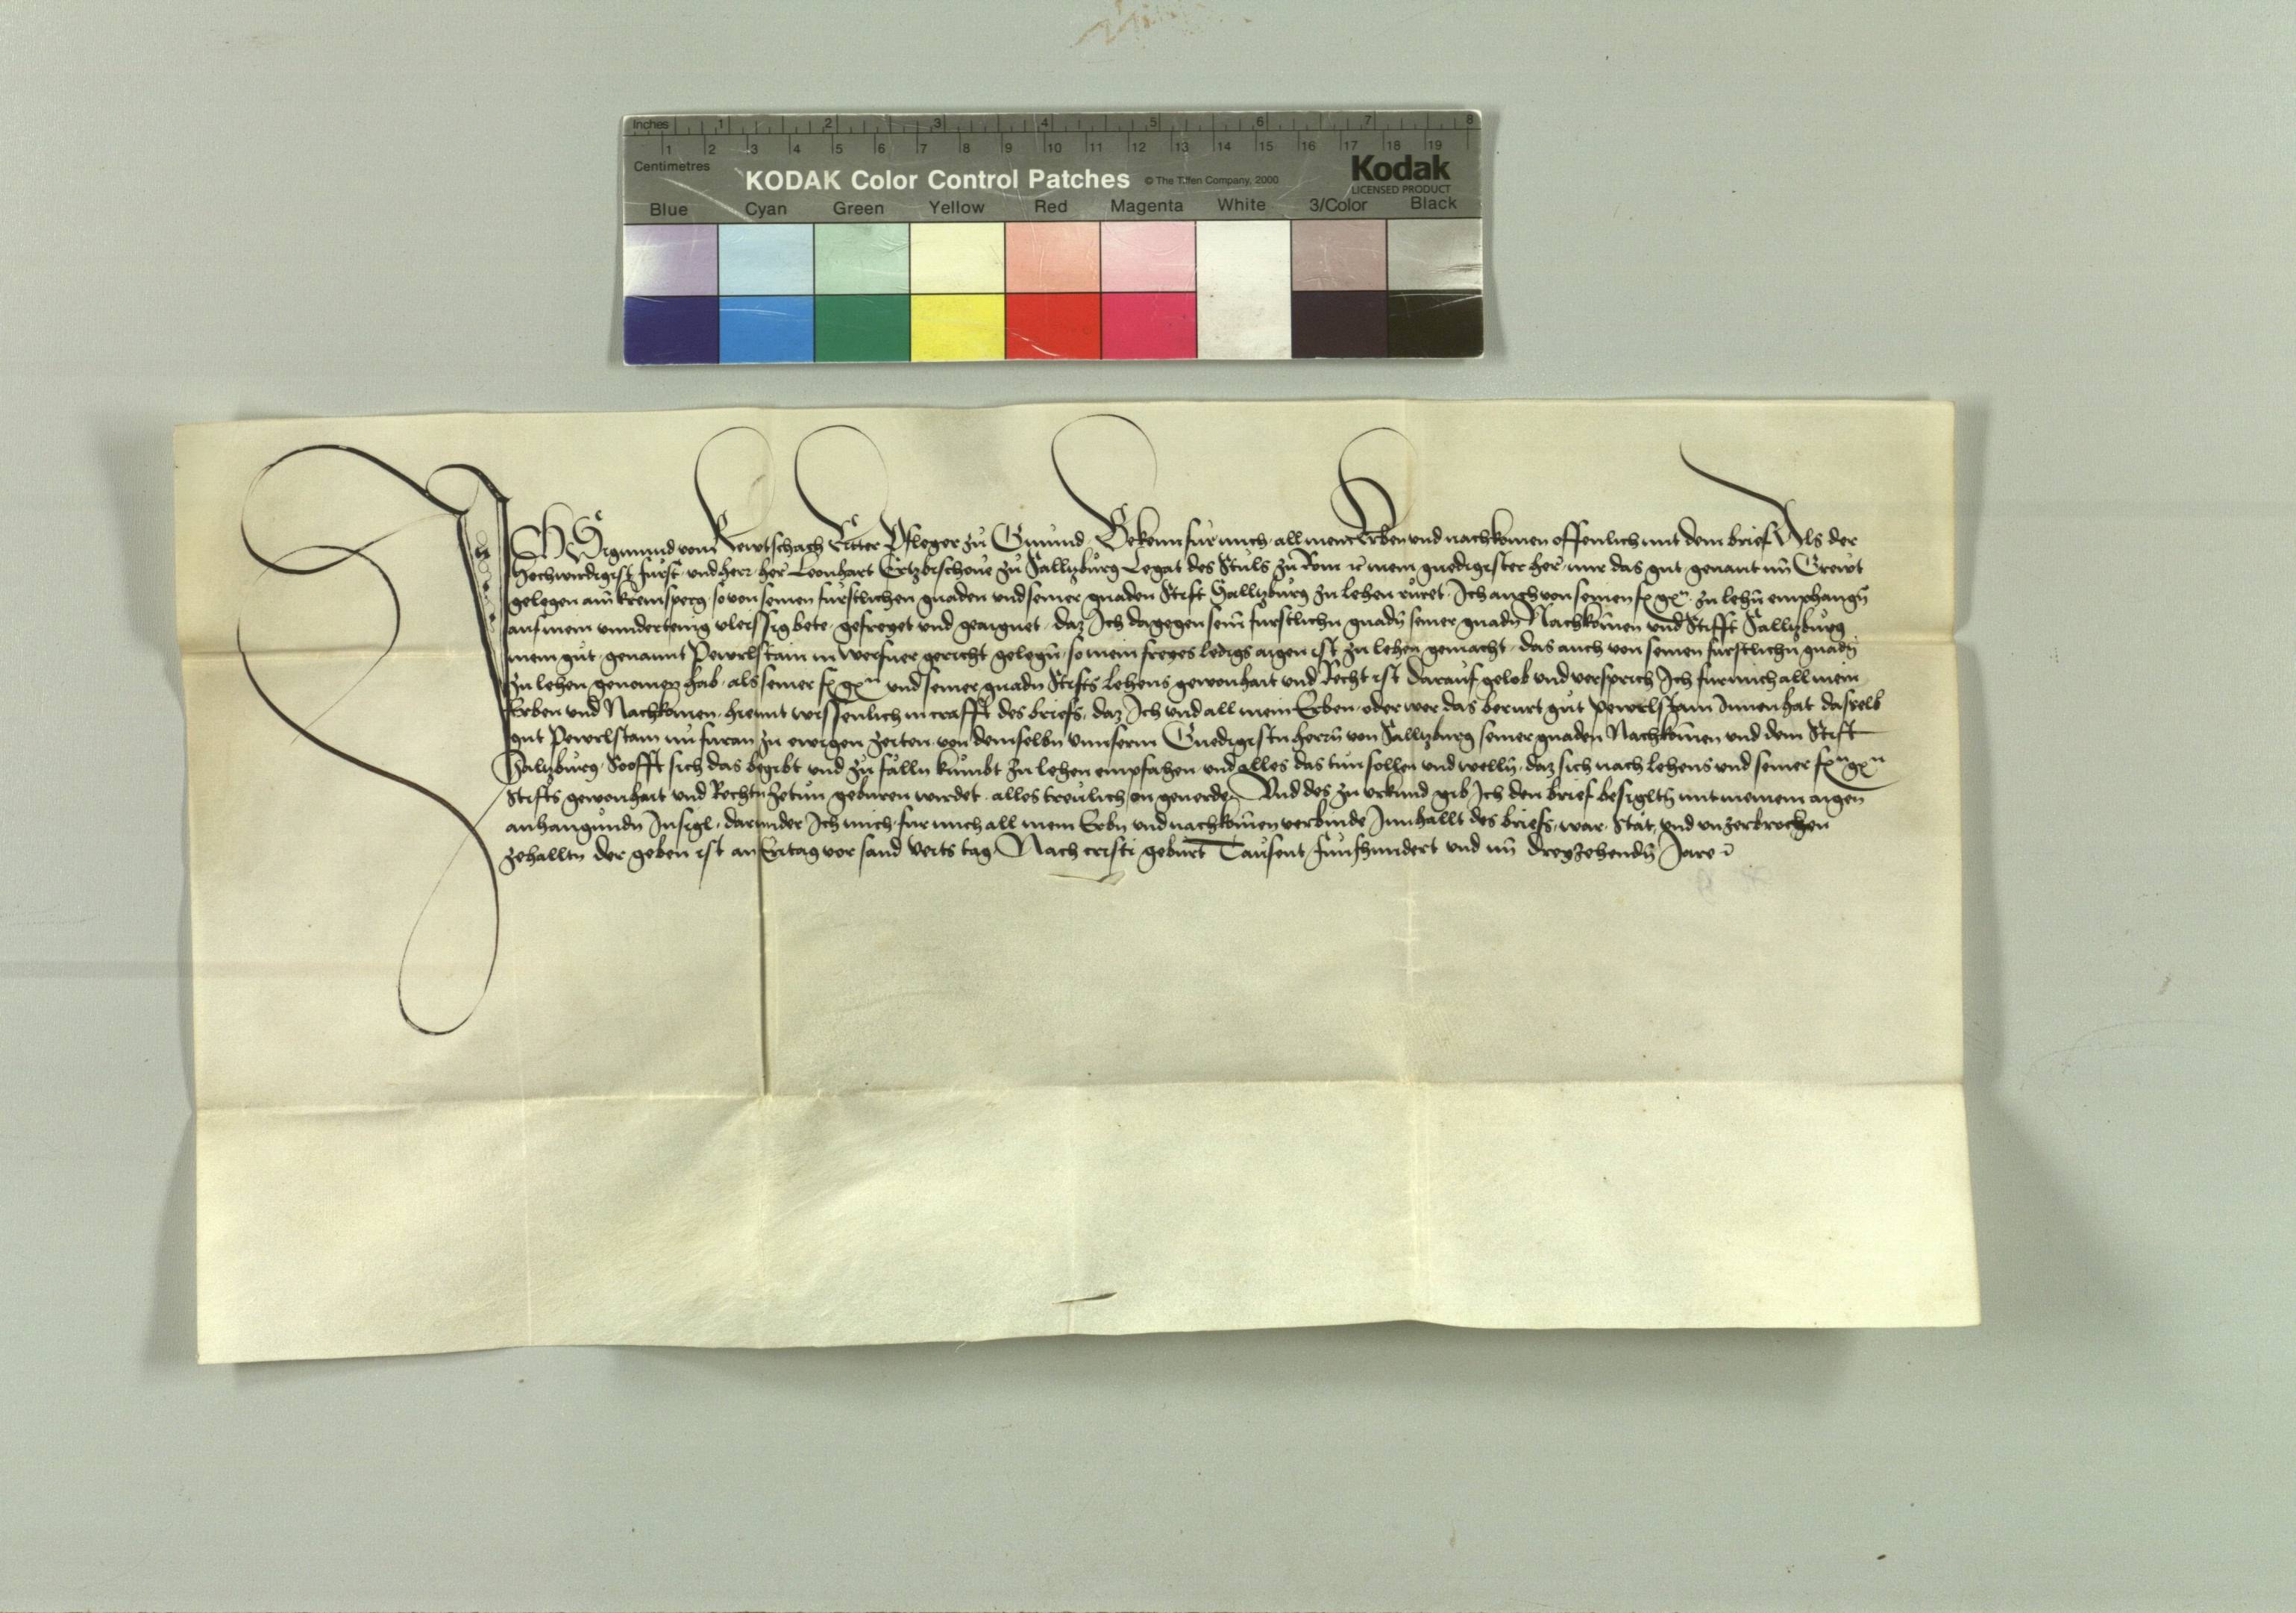 Inches 1 2 3 4 5 6 7 8
1 2 3 4 5 6 7 8 9 10 11 12 13 14 15 16 17 18 19
Centimetres
KODAK Color Control Patches © The Tiffen Company, 2000 Kodak
LICENSED PRODUCT
Blue Cyan Green Yellow Red Magenta White 3/Color Black
Ich Sigmund vom Kewtschach Ritter Pfleger zů Gmünd Bekenn für mich all mein Erben vnd nachkomen offenlich mit dem brief Als der
Hochwirdigist fürst vnd herr her Leonhart Ertzbischoue zů Salltzburg Legat des Stůls zů Rom ꝛc mein gnedigister her mir das gut genant im Grewt
gelegen am kremsperg so von seinen fürstlichen gnaden vnd seiner gnaden Stift Salltzburg zu lehen rüret Ich auch von seinen fx gxn zu lehn̄ emphangn̄
auf mein vnndertenig vleissig bete gefreyet vnd geaignet daz Ich dagegen sein̄ furstlichn̄ gnadn̄ seiner gnadn̄ Nachkomen vnd Stifft Salltzburg
mein gůt genannt Pewrlstain in Werfner gericht gelegn̄ so mein freyes ledigs aigen ist zu lehen gemacht das auch von seinen fürstlichn̄ gnadn̄
zu lehen genomen hab als seiner fx gxn vnd seiner gnadn Stifts lehens gewonhait vnd Recht ist Darauf gelob vnd versprich Ich fur mich all mein
Erben vnd Nachkomen hiemit wissenlich in crafft des briefs daz Ich vnd all mein Erben oder wer das berurt gůt pewrlstain Innenhat dasselb
gut Pewrlstain nu furan zu ewigen zeiten von demselbn vnnserm Gnedigistn herrn̄ von Salltzburg seiner gnaden Nachkomen vnd dem Stift
Saltzburg Soofft sich das begibt vnd zů fälln kůmbt zu lehen empfahen vnd alles das tůn sollen vnd welln̄ daz sich nach lehens vnd seiner fxn gxn
Stifts gewonhait vnd Rechtn zetůn geburen wirdet alles treulich on geuerde Vnd des zu vrkund gib Ich den brief besigltn̄ mit meinem aigen
anhangundn Insigl darunder Ich mich fur mich all mein Erbn vnd nachkomen verbinde Innhallt des briefs war Stät vnd vnzerbrochen
zehalltn der geben ist an Eritag vor sand Veits tag Nach cristi geburt Tausent funfhundert vnd im dreyzehendn̄ Jare